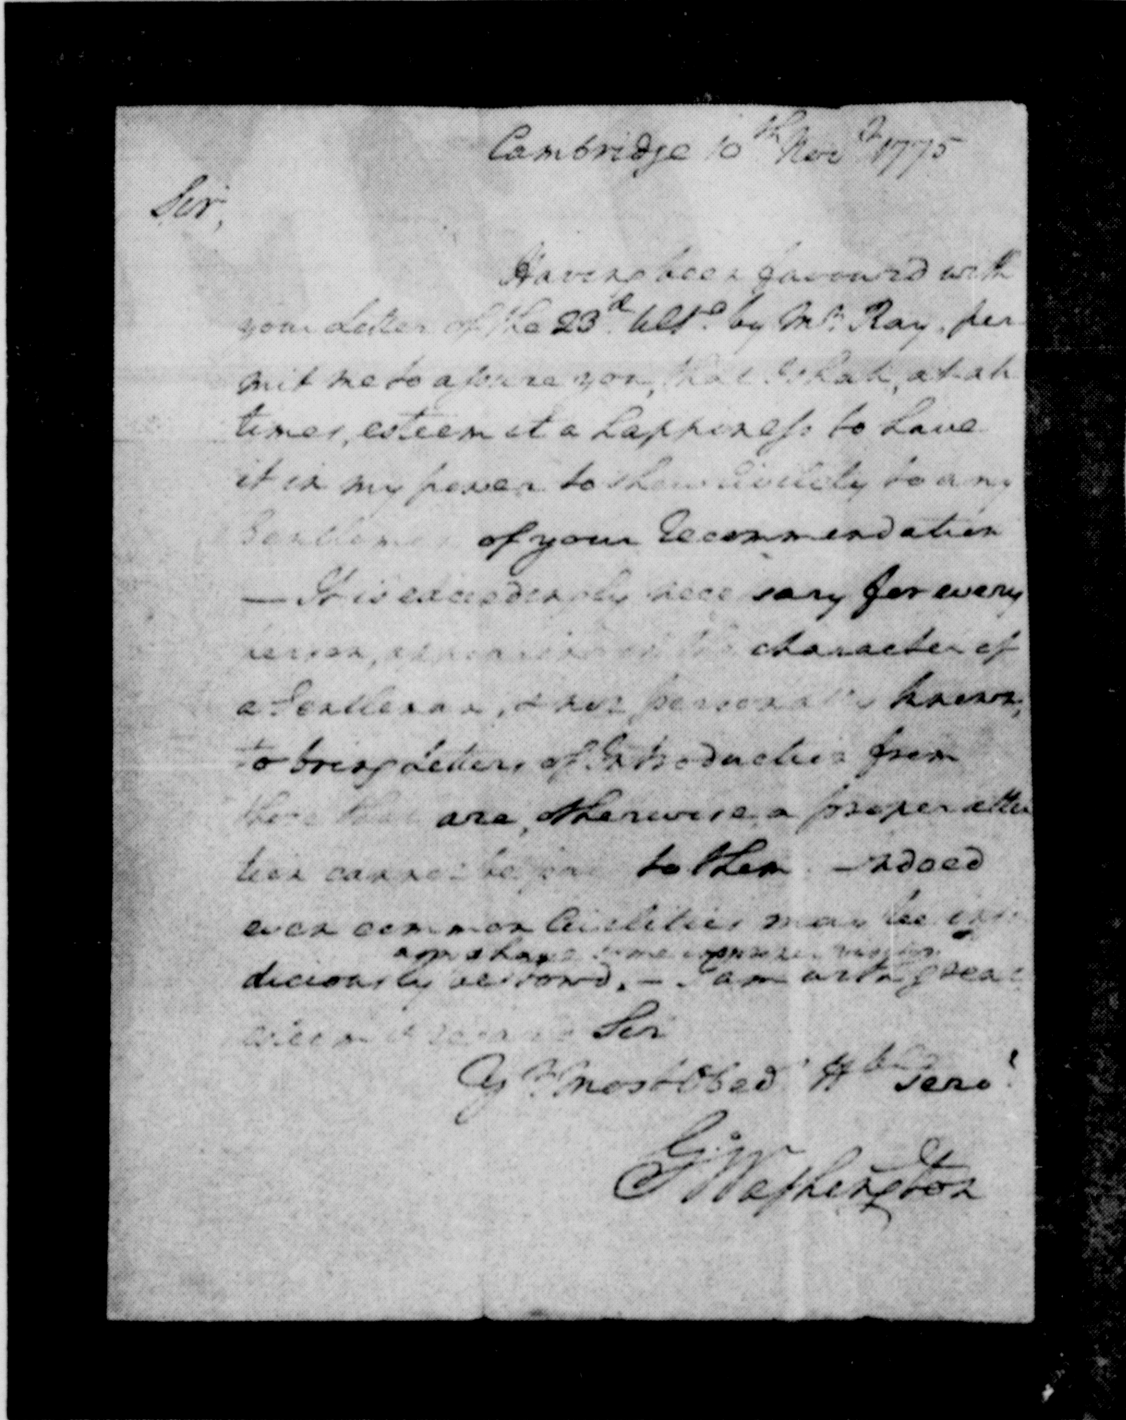 Cambridge 10th Novr 1775
Sir,
Having been favour'd with
your Letter of the 23d Ulto by Mr Ray, per
mit me to assure you, that I shall, at all
times, esteem it a happiness to have
it in my power to shew Civility to any
Gentleman of your recommendation
— It is exceedingly necessary for every
person, appearing in the character of
a Gentleman, & not personally known,
to bring Letters of Introduction from
those that are, otherwise a proper atten
tion cannot be paid to them. Indeed
even common Civilities may be inju
upon
diciously bestowd. — I am with great
esteem & regard Sir
Yr Most Obedt Hble Servt
Go: Washington